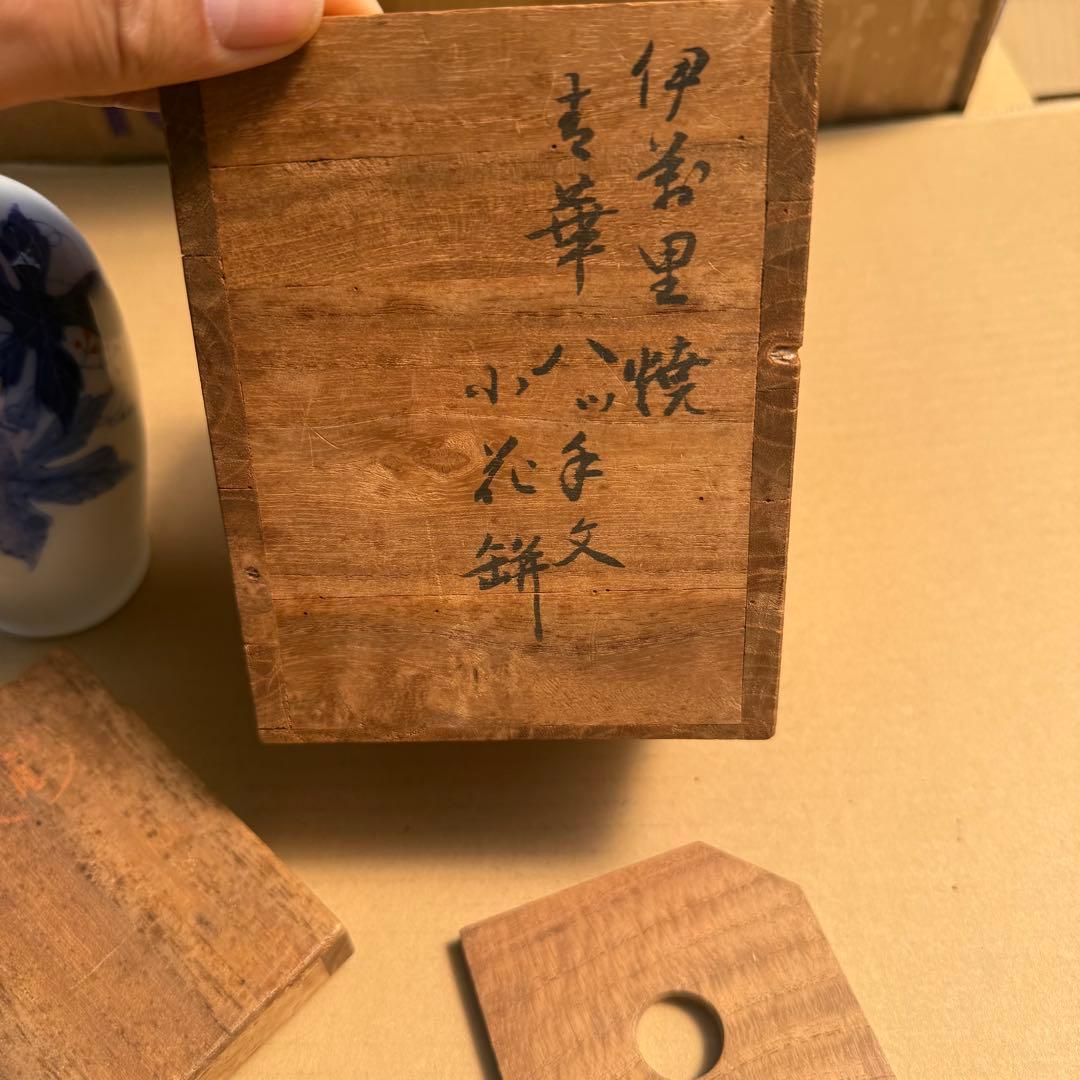 伊萬里焼
青華八ツ手文
小花缾